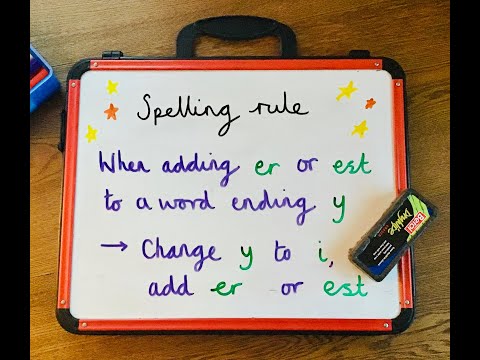 Spelling rule
When adding er or est
to a word ending y
→ Change y to i,
add er or est